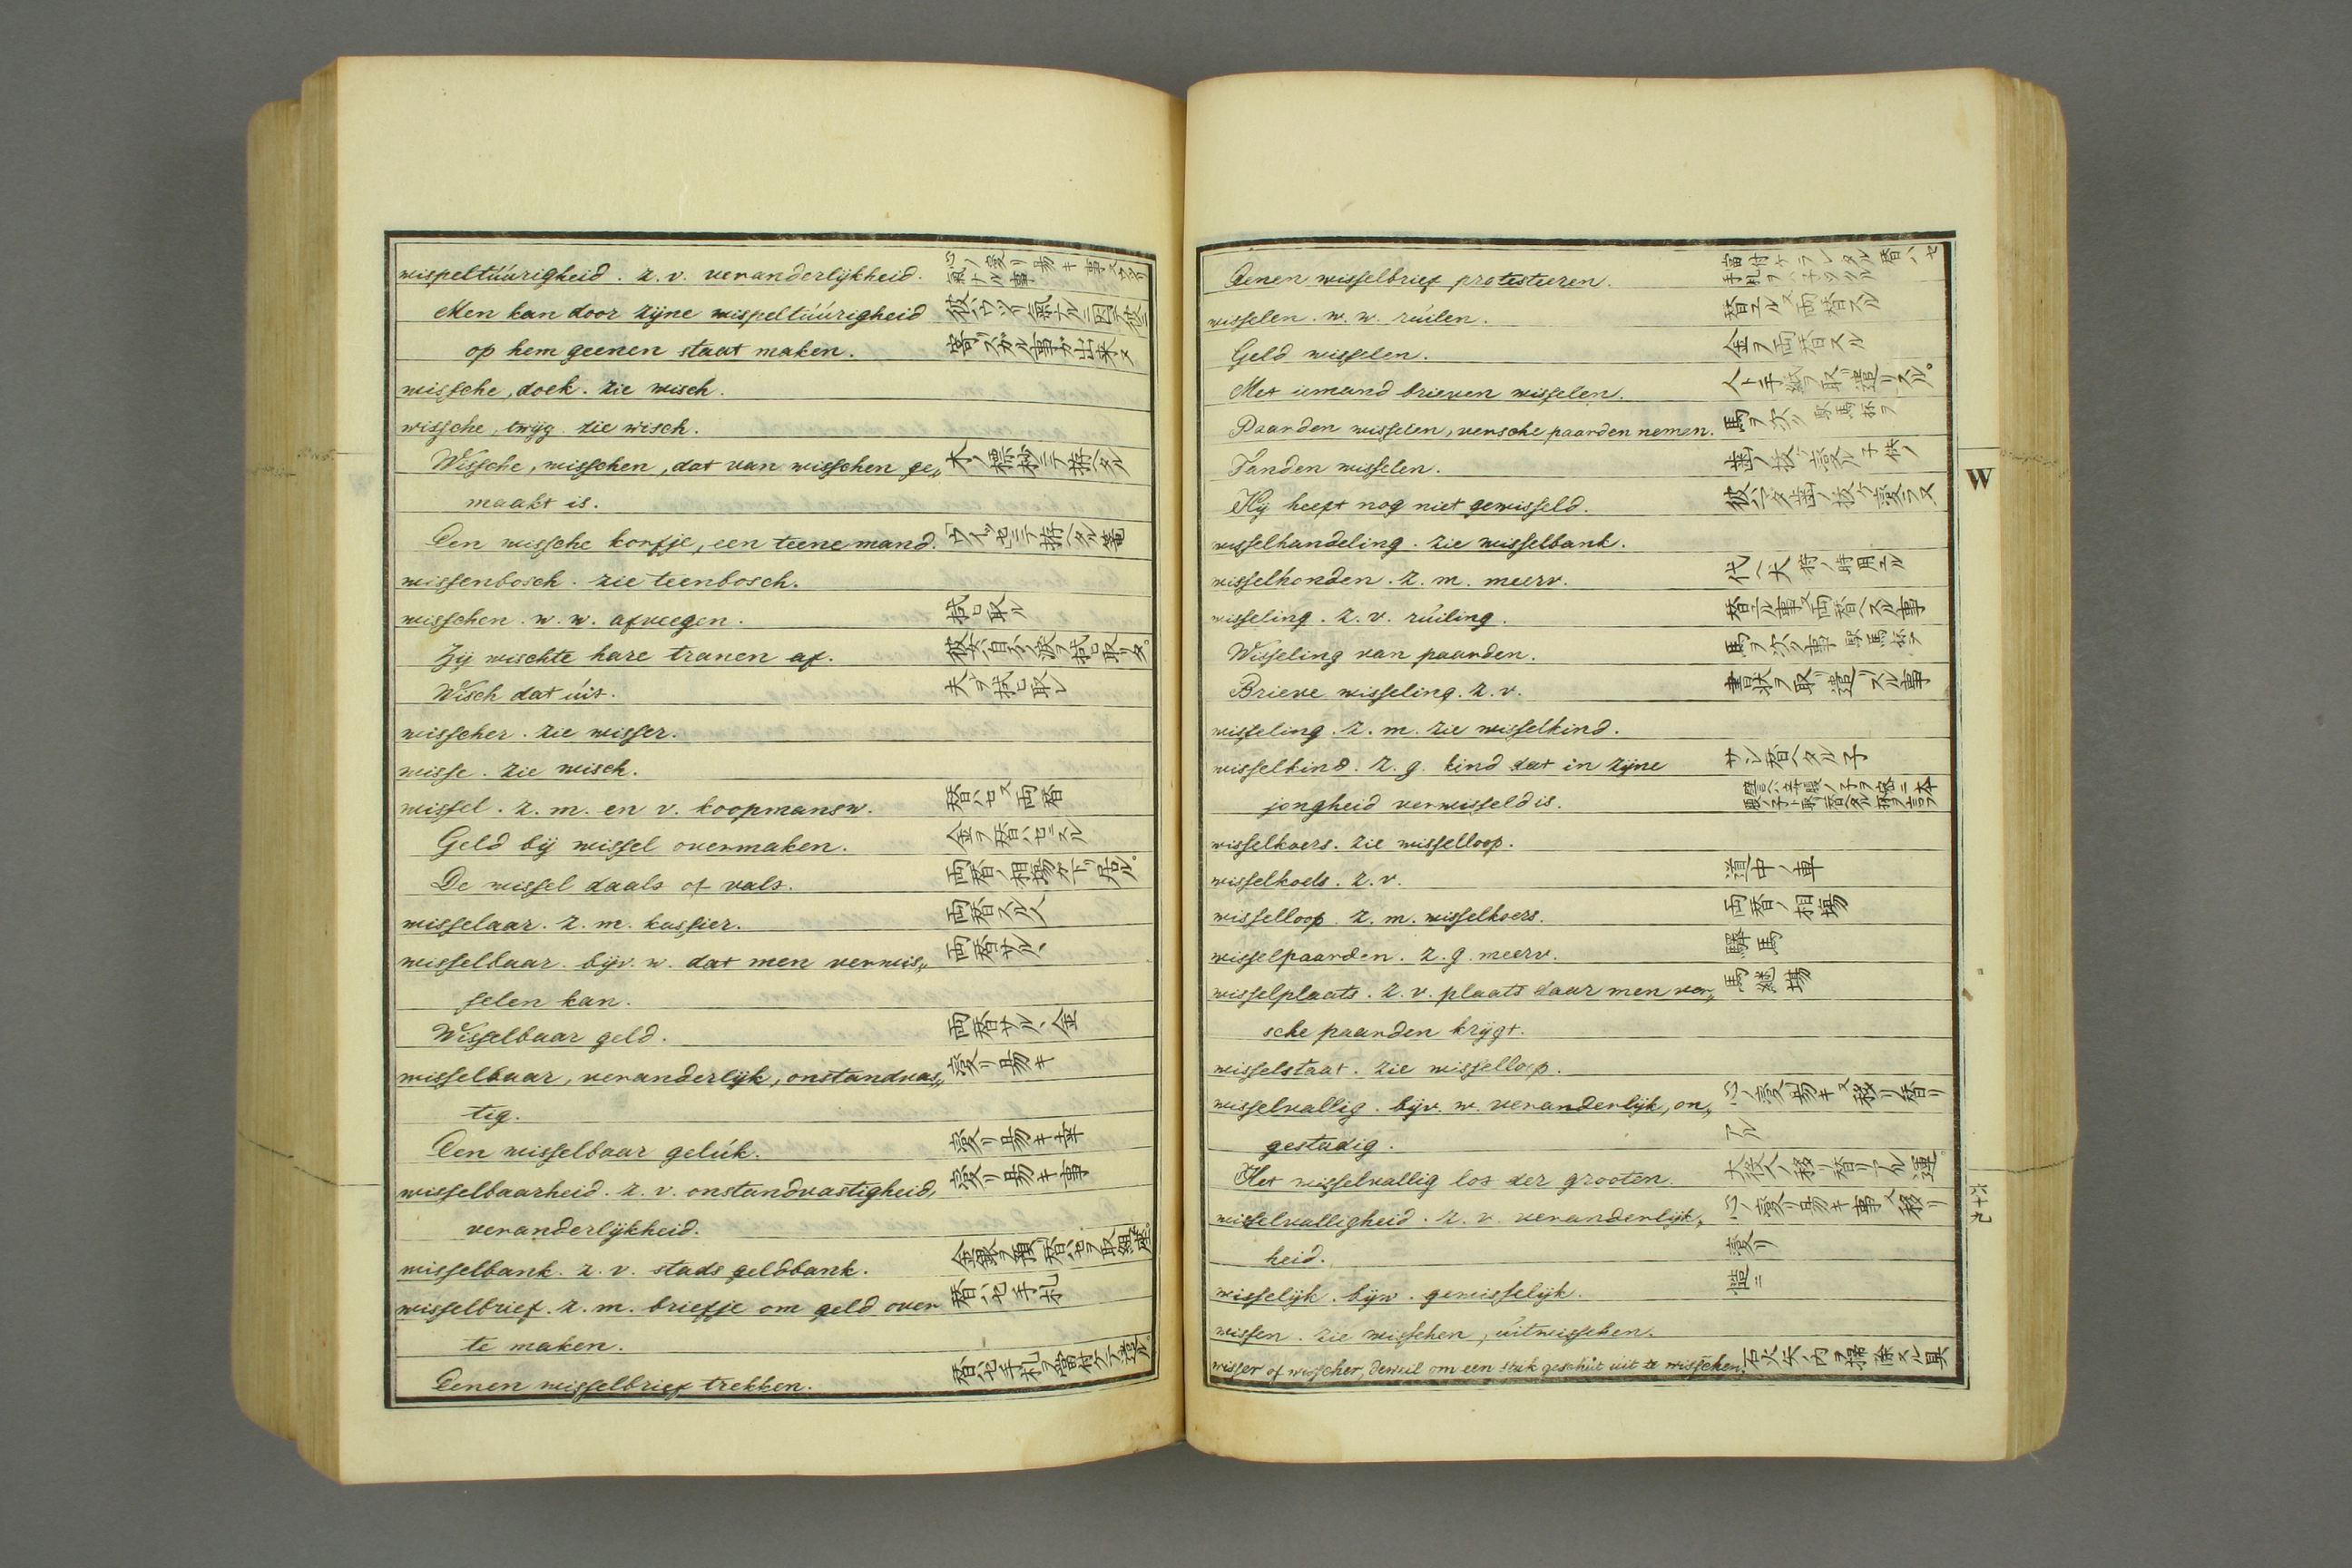 wispeltúúrigheid. z. v. veranderlijkheid. 心ノ変リ易キ事又
氣ナル事
Men kan door zijne wispeltúúrigheid
op hem geenen staat maken. 寄リスガル事ガ出来ヌ
wissche, doek. zie wisch.
wissche, twijg. zie wisch.
Wissche, wisschen, dat van wisschen ge„
maakt is.
Een wissche korfje, een teene mand.
wissenbosch. zie teenbosch.
wisschen. w. w. afveegen. 拭ヒ取ル
Zij wischte hare tranen af.
Wisch dat úit. 夫ヲ拭ヒ取レ
wisscher. zie wisser.
wisse. zie wisch.
wissel. z. m. en v. koopmansw. 替ハセ又両替
Geld bij wissel overmaken. 金ヲ替ハセニスル
De wissel daalt of valt. 両替ノ相場ガ下リ居ル。
wisselaar. z. m. kassier. 両替スル人
wisselbaar. bijv. w. dat men verwis„ 両替サルヽ
selen kan.
Wisselbaar geld. 両替サルヽ金
wisselbaar, veranderlijk, onstandvas„ 変リ易キ
tig.
Een wisselbaar gelúk. 変リ易キ幸
wisselbaarheid. z. v. onstandvastigheid, 変リ易キ事
veranderlijkheid.
wisselbank. z. v. stads geldbank.
wisselbrief. z. m. briefje om geld over 替ハセ手札
te maken.
Eenen wisselbrief trekken. 替ハセ手札ヲ當付ケテ遣ル。
Eenen wisselbrief protesteeren. 當付ケラレタル替ハセ
手札ヲ
wisselen. w. w. rúilen. 替エル又両替スル
Geld wisselen. 金ヲ両替スル
Met iemand brieven wisselen. 人ト手紙ヲ取リ遣リスル。
Paarden wisselen, versche paarden nemen. 馬ヲ次グ 駅馬杯ヲ
Tanden wisselen. 歯ノ抜ケ変ル 子供ノ
Hij heeft nog niet gewisseld. 彼ハマダ歯ノ抜ケ変ラヌ
wisselhandeling. zie wisselbank.
wisselhonden. z. m. meerv. 代ヘ犬 狩ノ時用エル
wisseling. z. v. rúiling. 替エル事又両替ヘスル事
Wisseling van paarden. 馬ヲ次グ事 駅馬杯ヲ
Brieve wisseling. z. v. 書状ヲ取リ遣リスル事
wisseling. z. m. zie wisselkind.
wisselkind. z. g. kind dat in zijne サシ替ヘタル子
jongheid verwisseld is.
wisselkoers. zie wisselloop.
wisselkoets. z. v. 道中ノ車
wisselloop. z. m. wisselkoers. 両替ノ相場
wisselpaarden. z. g. meerv. 驛馬
wisselplaats. z. v. plaats daar men ver„ 馬継場
sche paarden krijgt.
wisselstaat. zie wisselloop.
wisselvallig. bijv. w. veranderlijk, on„ 心ノ変リ易キ又移リ替リ
gestadig. アル
Het wisselvallig lot der grooten. 大役人ノ移リ替リアル運。
wisselvalligheid. z. v. veranderlijk„ 心ノ変リ易キ事又移リ
heid. 変リ
wisselijk. bijw. gewisselijk. 慥ニ
wissen. zie wisschen, úitwisschen.
wisser of wisscher, deweil om een stuk geschút uit te wisschen. 石火矢ノ内ヲ掃除スル具
W
六十九